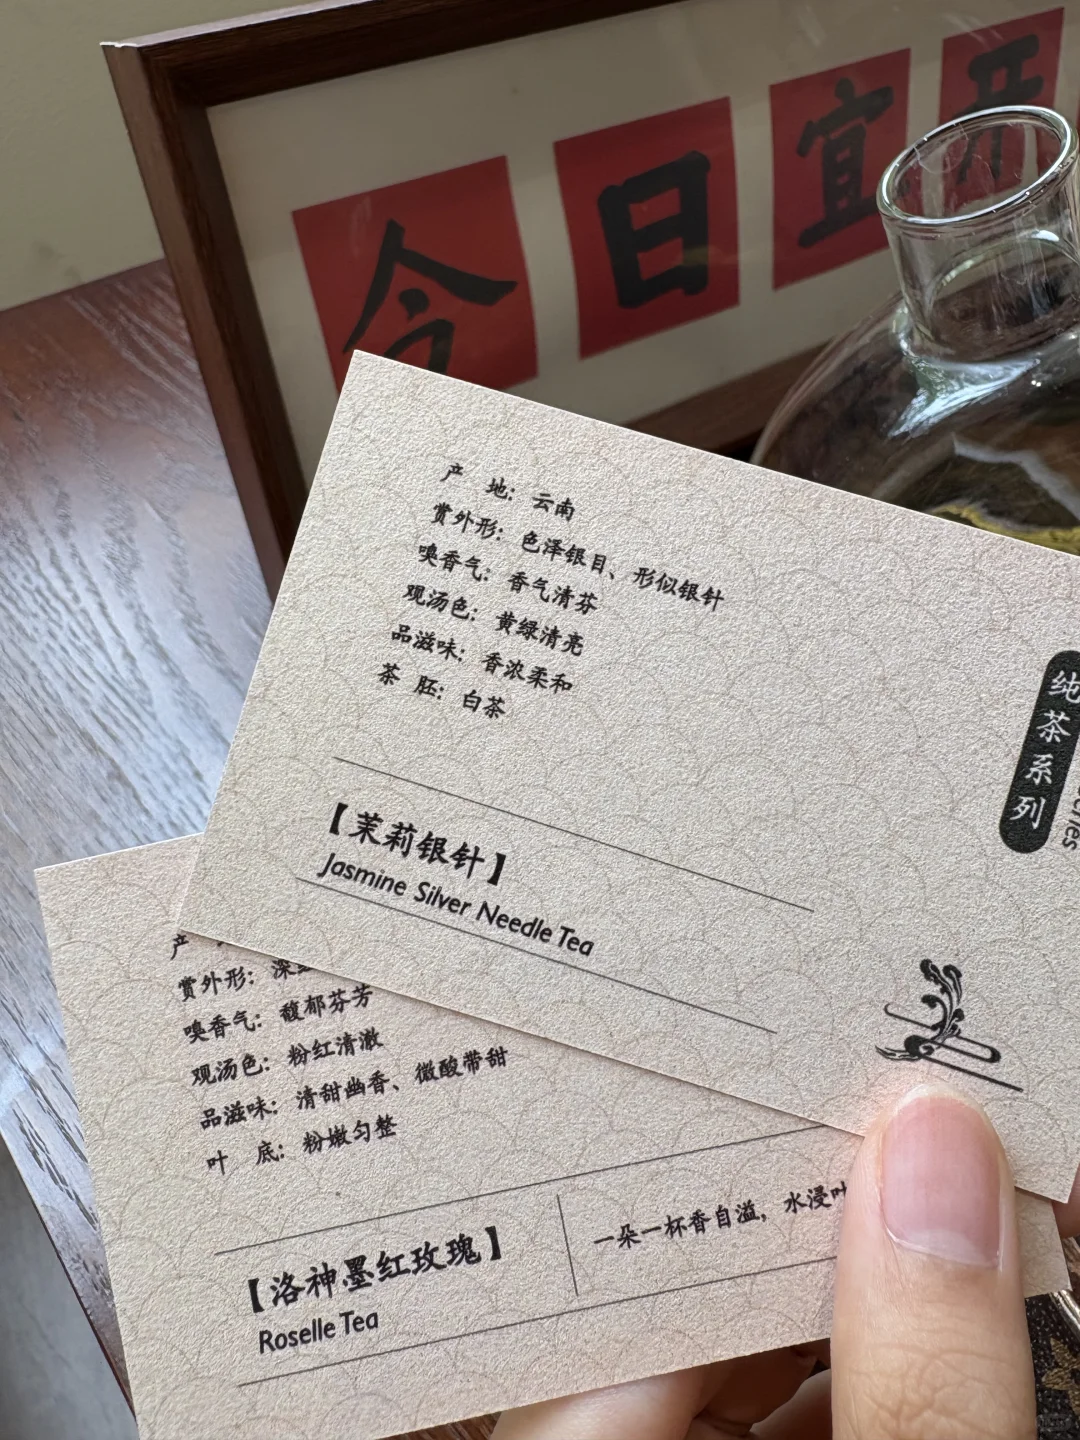 今日宜开
产 地：云南
赏外形：色泽银目、形似银针
嗅香气：香气清芬
观汤色：黄绿清亮
品滋味：香浓柔和
茶 胚：白茶
【茉莉银针】
Jasmine Silver Needle Tea
纯茶系列
产
赏外形：深
嗅香气：馥郁芬芳
观汤色：粉红清澈
品滋味：清甜幽香、微酸带甜
叶 底：粉嫩匀整
【洛神墨红玫瑰】
Roselle Tea
一朵一杯香自溢，水浸叶